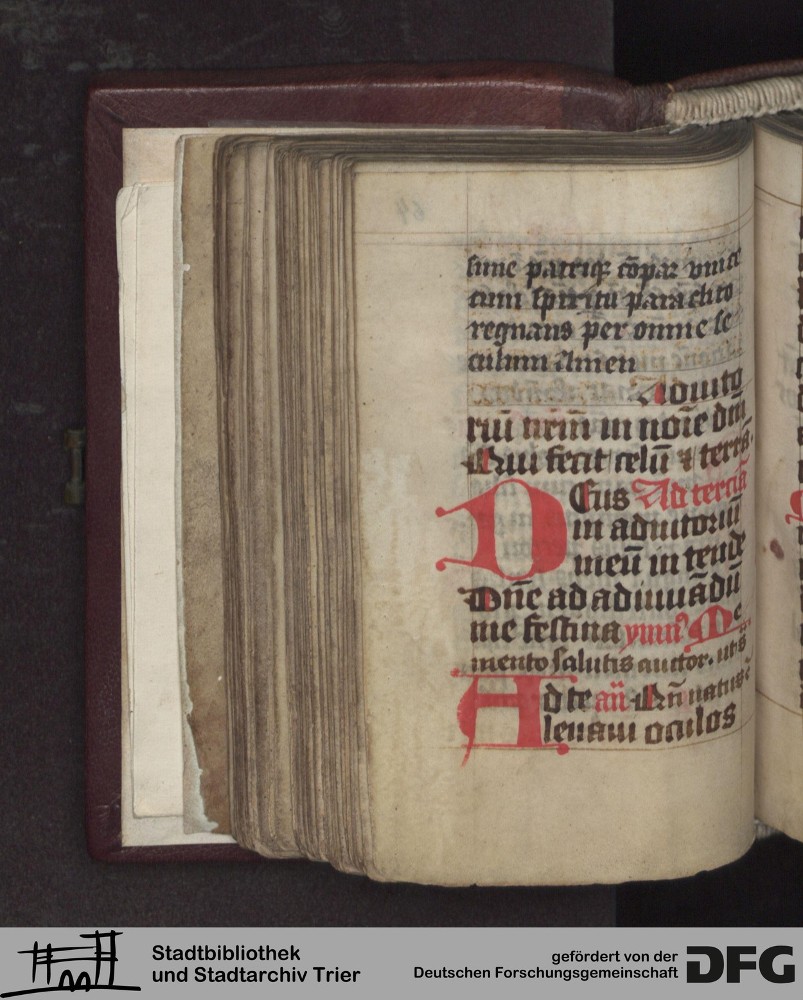 sime patriqȝ cōpar vnice
cum spiritu paraclito
regnans per omne se
culum Amen
Adiuto
riū nrm̄ in noīe dm̄
Qui fecit celū ⁊ terrā.
DEus Ad terciā
in adiutoriū
meū in tende
Dn̄e ad adiuuādū
me festina ymn᷒ Me
mento salutis auctor. ut s̄
Ad te an̄ Qn̄ natus ē
leuaui oculos
Stadtbibliothek
und Stadtarchiv Trier
gefördert von der
Deutschen Forschungsgemeinschaft
DFG